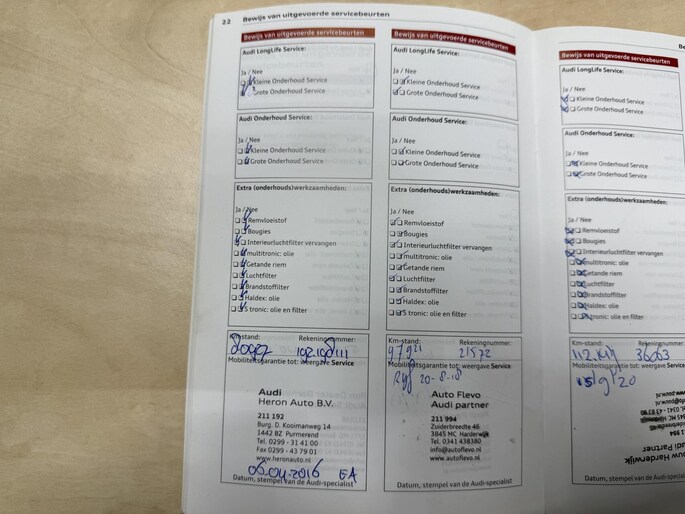 22 Bewijs van uitgevoerde servicebeurten
Bewijs van uitgevoerde servicebeurten
Audi LongLife Service:
Ja / Nee
Kleine Onderhoud Service
Grote Onderhoud Service
Audi Onderhoud Service:
Ja / Nee
Kleine Onderhoud Service
Grote Onderhoud Service
Extra (onderhouds)werkzaamheden:
Ja / Nee
Remvloeistof
Bougies
Interieurluchtfilter vervangen
multitronic: olie
Getande riem
Luchtfilter
Brandstoffilter
Haldex: olie
S tronic: olie en filter
Km-stand: Rekeningnummer:
Mobiliteitsgarantie tot: weergave Service
Audi
Heron Auto B.V.
211 192
Burg. D. Kooimanweg 14
1442 BZ Purmerend
Tel. 0299 - 31 41 00
Fax 0299 - 43 79 01
www.heronauto.nl
06-04-2016 EA
Datum, stempel van de Audi-specialist
Bewijs van uitgevoerde servicebeurten
Audi LongLife Service:
Ja / Nee
Kleine Onderhoud Service
Grote Onderhoud Service
Audi Onderhoud Service:
Ja / Nee
Kleine Onderhoud Service
Grote Onderhoud Service
Extra (onderhouds)werkzaamheden:
Ja / Nee
Remvloeistof
Bougies
Interieurluchtfilter vervangen
multitronic: olie
Getande riem
Luchtfilter
Brandstoffilter
Haldex: olie
S tronic: olie en filter
Km-stand: Rekeningnummer:
97921 21572
Mobiliteitsgarantie tot: weergave Service
20-8-18
Auto Flevo
Audi partner
211 994
Zuiderbreedte 46
3845 MC Harderwijk
Tel. 0341 438380
info@autoflevo.nl
www.autoflevo.nl
Datum, stempel van de Audi-specialist
Be
Bewijs van uitgevoerde servicebeurten
Audi LongLife Service:
Ja / Nee
Kleine Onderhoud Service
Grote Onderhoud Service
Audi Onderhoud Service:
Ja / Nee
Kleine Onderhoud Service
Grote Onderhoud Service
Extra (onderhouds)werkzaamheden:
Ja / Nee
Remvloeistof
Bougies
Interieurluchtfilter vervangen
multitronic: olie
Getande riem
Luchtfilter
Brandstoffilter
Haldex: olie
S tronic: olie en filter
Km-stand: Rekeningnummer:
36063
Mobiliteitsgarantie tot: weergave Service
Harderwijk
Datum, stempel van de Audi-specialist